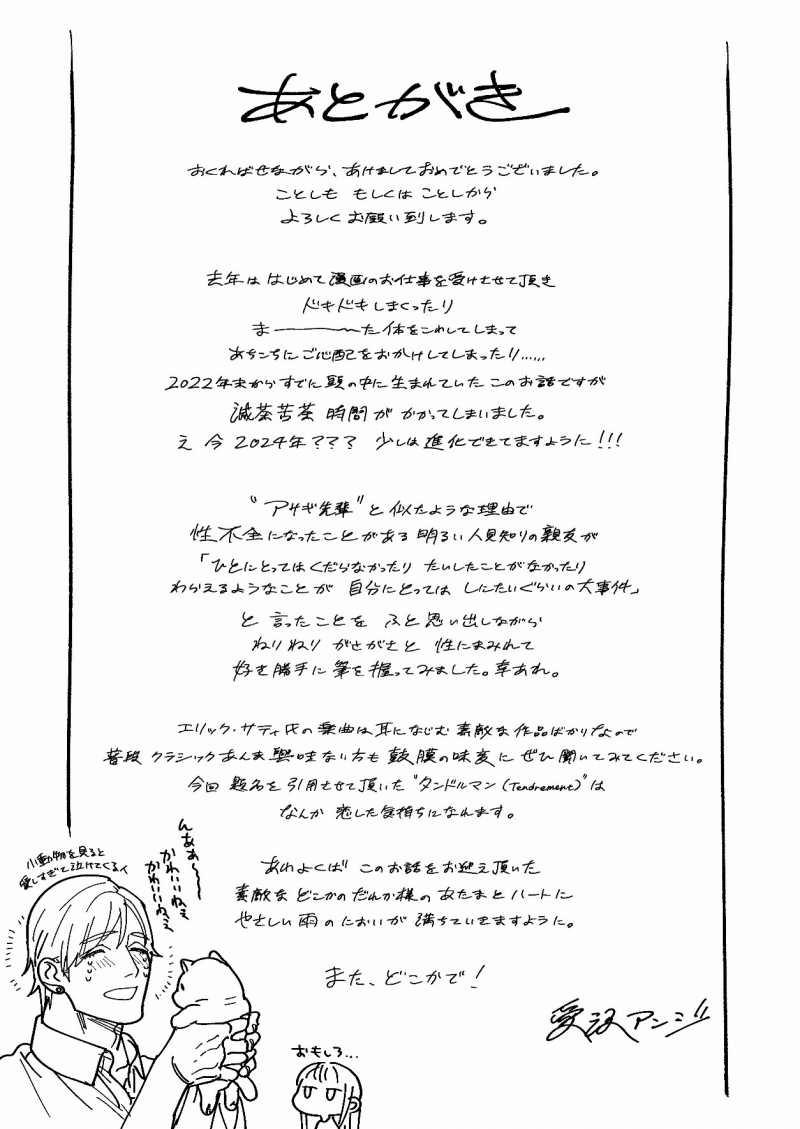 あとがき
おくればせながら、あけましておめでとうございました。
ことしも もしくは ことしから
よろしく お願い到します。
去年は はじめて 漫画のお仕事を受けさせて頂き
ドキドキ しまくったり
ま――――〜た 体をこわしてしまって
あちこちに ご心配を おかけしてしまったり……
2022年末から すでに 頭の中に 生まれていた このお話ですが
滅茶苦茶 時間が かかってしまいました。
え 今 2024年??? 少しは 進化できてますように!!!
“アサギ先輩”と 似たような理由で
性不全になったことがある 明るい 人見知りの親友が
「ひとにとっては くだらなかったり たいしたことがなかったり
わらえるようなことが 自分にとっては しにたいぐらいの大事件」
と 言ったことを ふと 思い出しながら
ねりねり がさがさと 性にまみれて
好き勝手に 筆を握ってみました。幸あれ。
エリック・サティ氏の 楽曲は 耳になじむ 素敵な 作品ばかりなので
普段 クラシック あんま 興味ない方も 鼓膜の味変に ぜひ 聞いてみてください。
今回 題名を 引用させて頂いた “タンドルマン (Tendrement)”は
なんか 恋した気持ちに なれます。
あわよくば このお話を お迎え頂いた
素敵な どこかの だれか様の あたまと ハートに
やさしい 雨の においが 満ちていきますように。
また、どこかで!
愛沢アンジ
小動物を見ると
愛しすぎて泣けてくるイ
んああ〜〜
かわいいねぇ
かわいいねぇ
おもしろ…